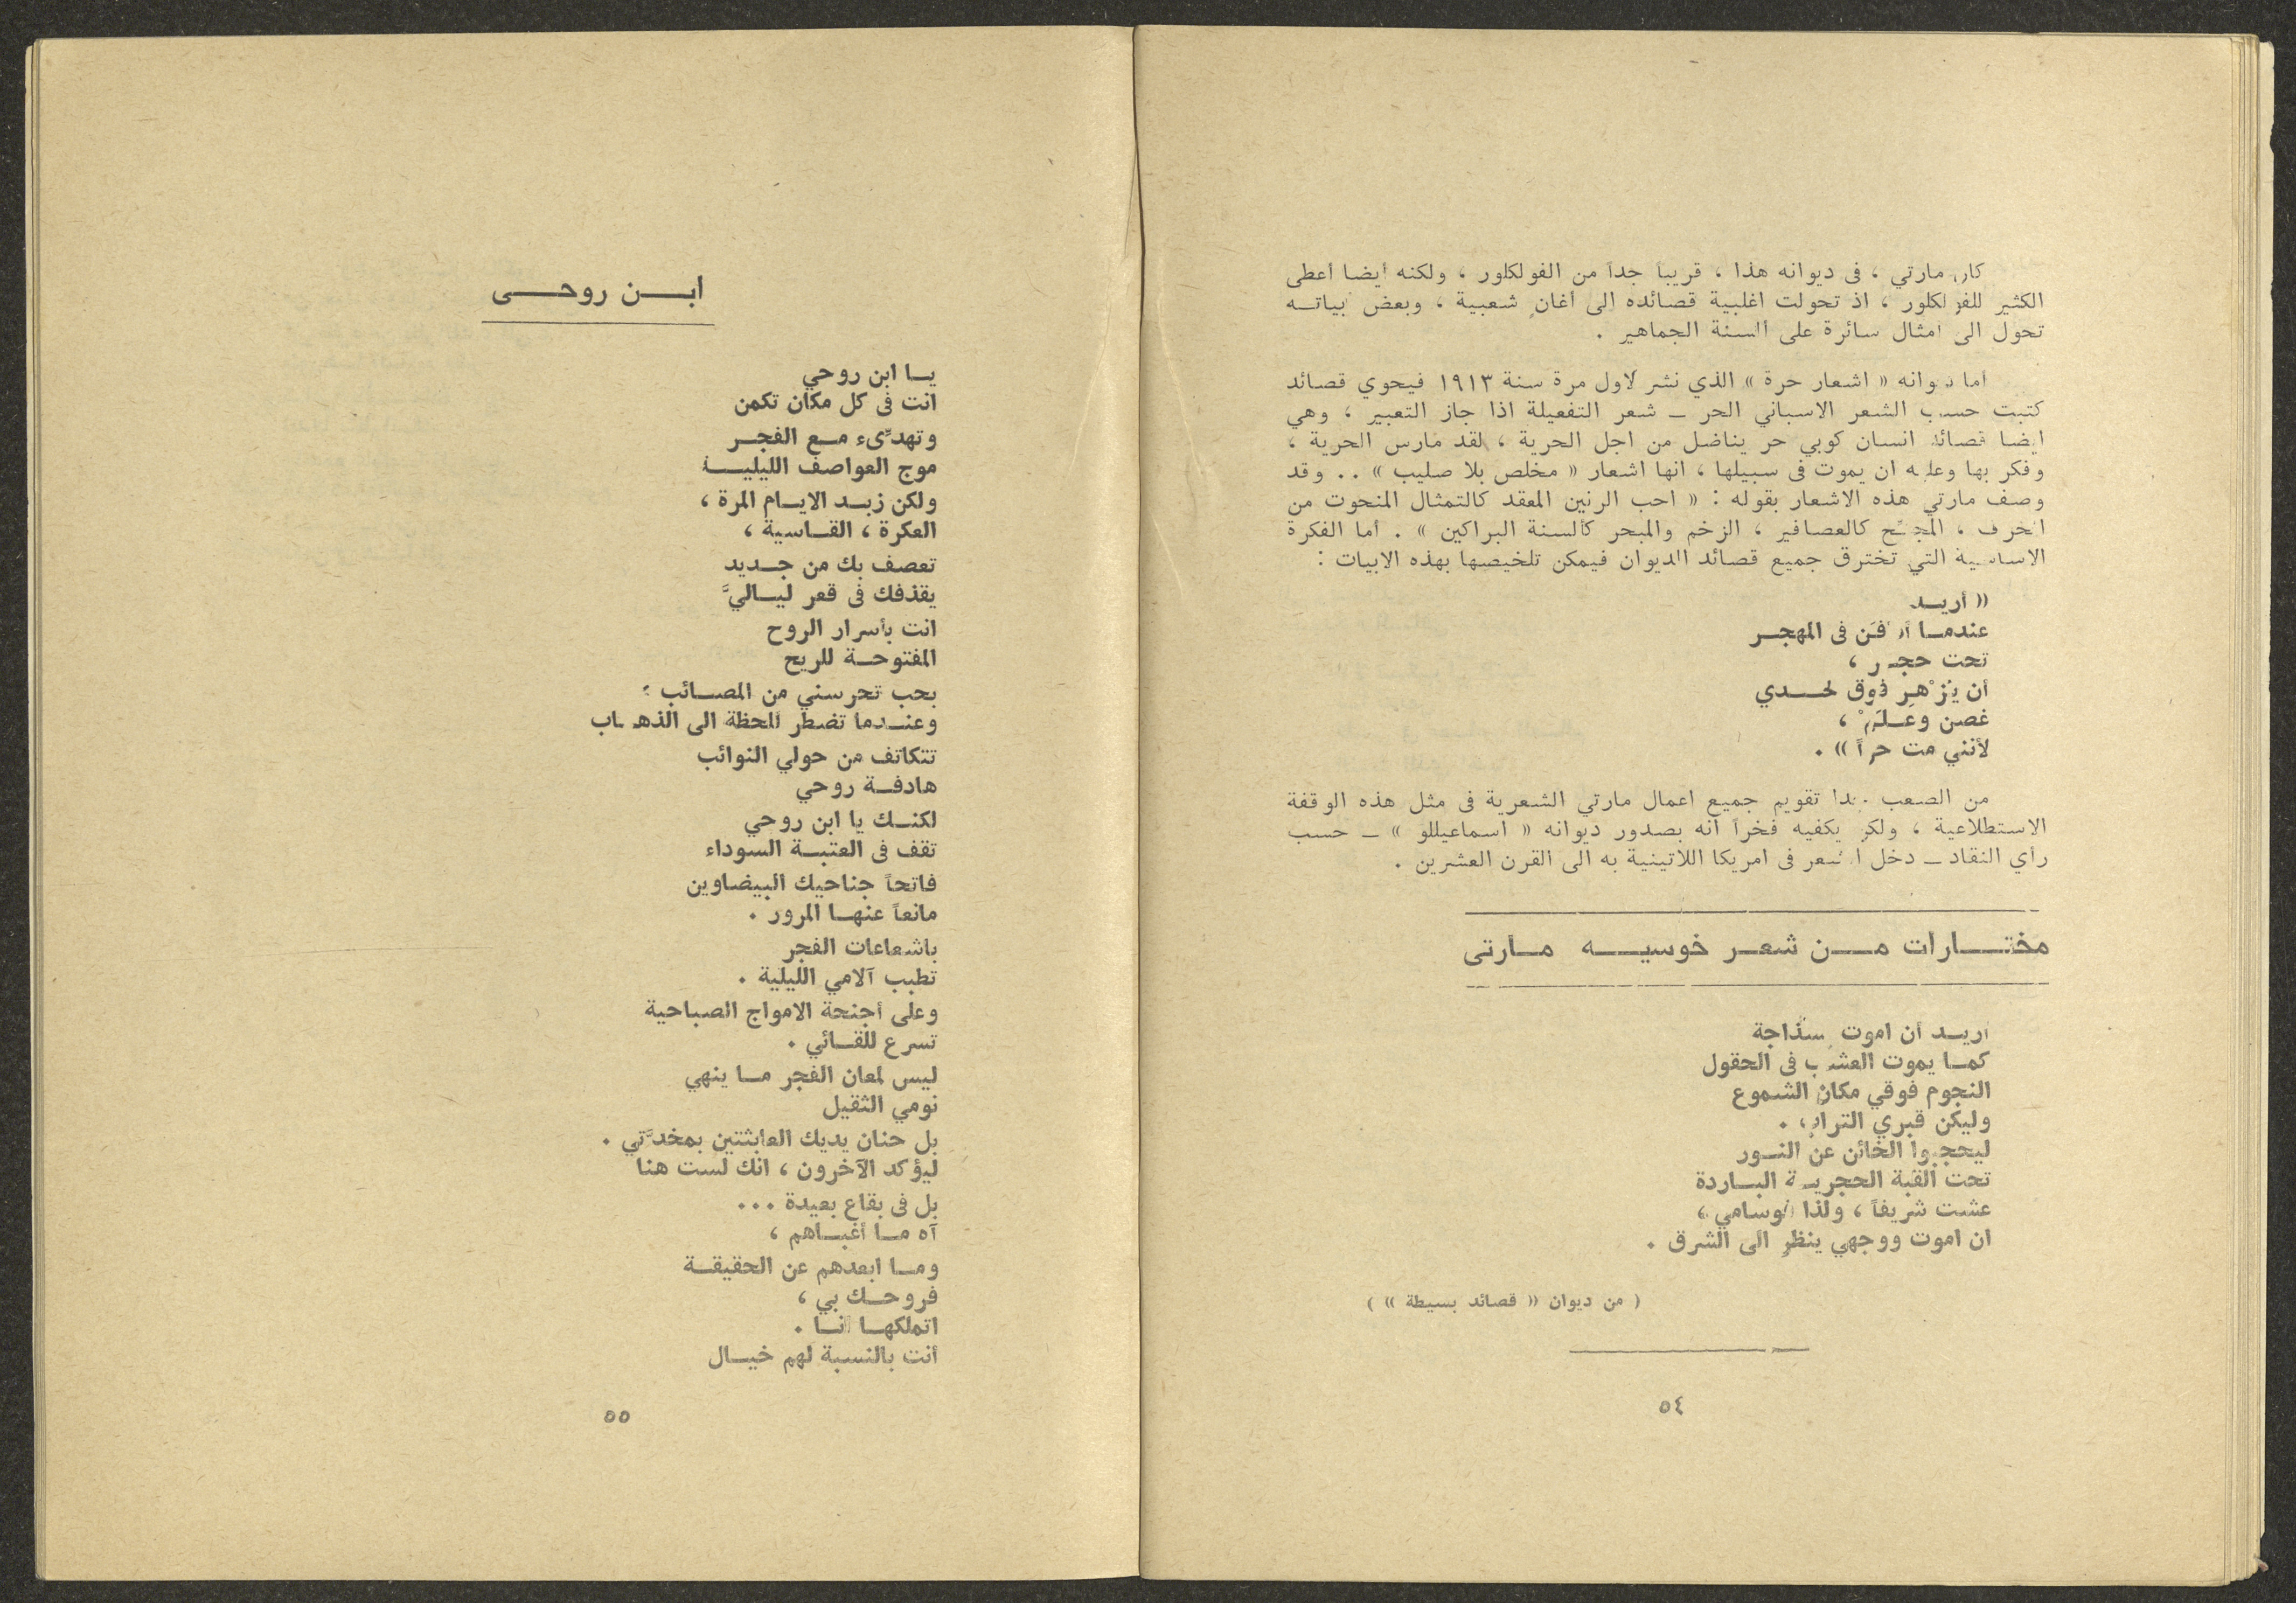 كان مارتي ، في ديوانه هذا ، قريباً جداً من الفولكلور ، ولكنه أيضا أعطى
الكثير للفولكلور ، اذ تحولت اغلبية قصائده الى أغانٍ شعبية ، وبعض أبياتـــه
تحول الى امثال سائرة على ألسنة الجماهير .
أما ديوانه « اشعار حرة » الذي نشر لاول مرة سنة ١٩١٣ فيحوي قصائد
كتبت حسب الشعر الاسباني الحر ــ شعر التفعيلة اذا جاز التعبير ، وهي
ايضا قصائد انسان كوبي حر يناضل من اجل الحرية ، لقد مارس الحرية ،
وفكر بها وعليه ان يموت في سبيلها ، انها اشعار « مخلص بلا صليب » .. وقد
وصف مارتي هذه الاشعار بقوله : « احب الرنين المعقد كالتمثال المنحوت من
الحرف ، المجنّح كالعصافير ، الزخم والمبحر كألسنة البراكين » . أما الفكرة
الاساسية التي تخترق جميع قصائد الديوان فيمكن تلخيصها بهذه الابيات :
« أريــد
عندمــا أدفَن في المهجــر
تحت حجــر ،
أن يُزْهِر فوق لحـــدي
غصن وعَــلَمْ ،
لأنني مت حراً » .
من الصعب جدا تقويم جميع اعمال مارتي الشعرية في مثل هذه الوقفة
الاستطلاعية ، ولكن يكفيه فخراً أنه بصدور ديوانه « اسماعيللو » ــ حسب
رأي النقاد ــ دخل الشعر في امريكا اللاتينية به الى القرن العشرين .
مختـــارات مـــن شعـــر خوسيـــه مـــارتى
أريــد أن اموت بسذاجة
كمــا يموت العشب في الحقول
النجوم فوقي مكان الشموع
وليكن قبري التراب .
ليحجبوا الخائن عن النــور
تحت القبة الحجريــة البــاردة
عشت شريفاً ، ولذا فوسامي ،
ان اموت ووجهي ينظر الى الشرق .
( من ديوان « قصائد بسيطة » )
٥٤
ابـــن روحـــى
يــا ابن روحي
انت في كل مكان تكمن
وتهدّىء مــع الفجــر
موج العواصف الليليـــة
ولكن زبــد الايــام المرة ،
العكرة ، القــاسية ،
تعصف بك من جــديد
يقذفك في قعر ليــاليَّ
انت بأسرار الروح
المفتوحــة للريح
بحب تحرسني من المصــائب :
وعنــدما تضطر للحظة الى الذهــاب
تتكاتف من حولي النوائب
هادفــة روحي
لكنــك يا ابن روحي
تقف في العتبــة السوداء
فاتحاً جناحيك البيضاوين
مانعاً عنهــا المرور .
باشعاعات الفجر
تطبب آلامي الليلية .
وعلى أجنحة الامواج الصباحية
تسرع للقــائي .
ليس لمعان الفجر مــا ينهي
نومي الثقيل
بل حنان يديك العابثتين بمخدَّتي .
ليؤكد الآخرون ، انك لست هنا
بل في بقاع بعيدة ...
آه مــا أغبــاهم ،
ومــا ابعدهم عن الحقيقــة
فروحــك بي ،
اتملكهــا أنــا .
أنت بالنسبة لهم خيــال
٥٥